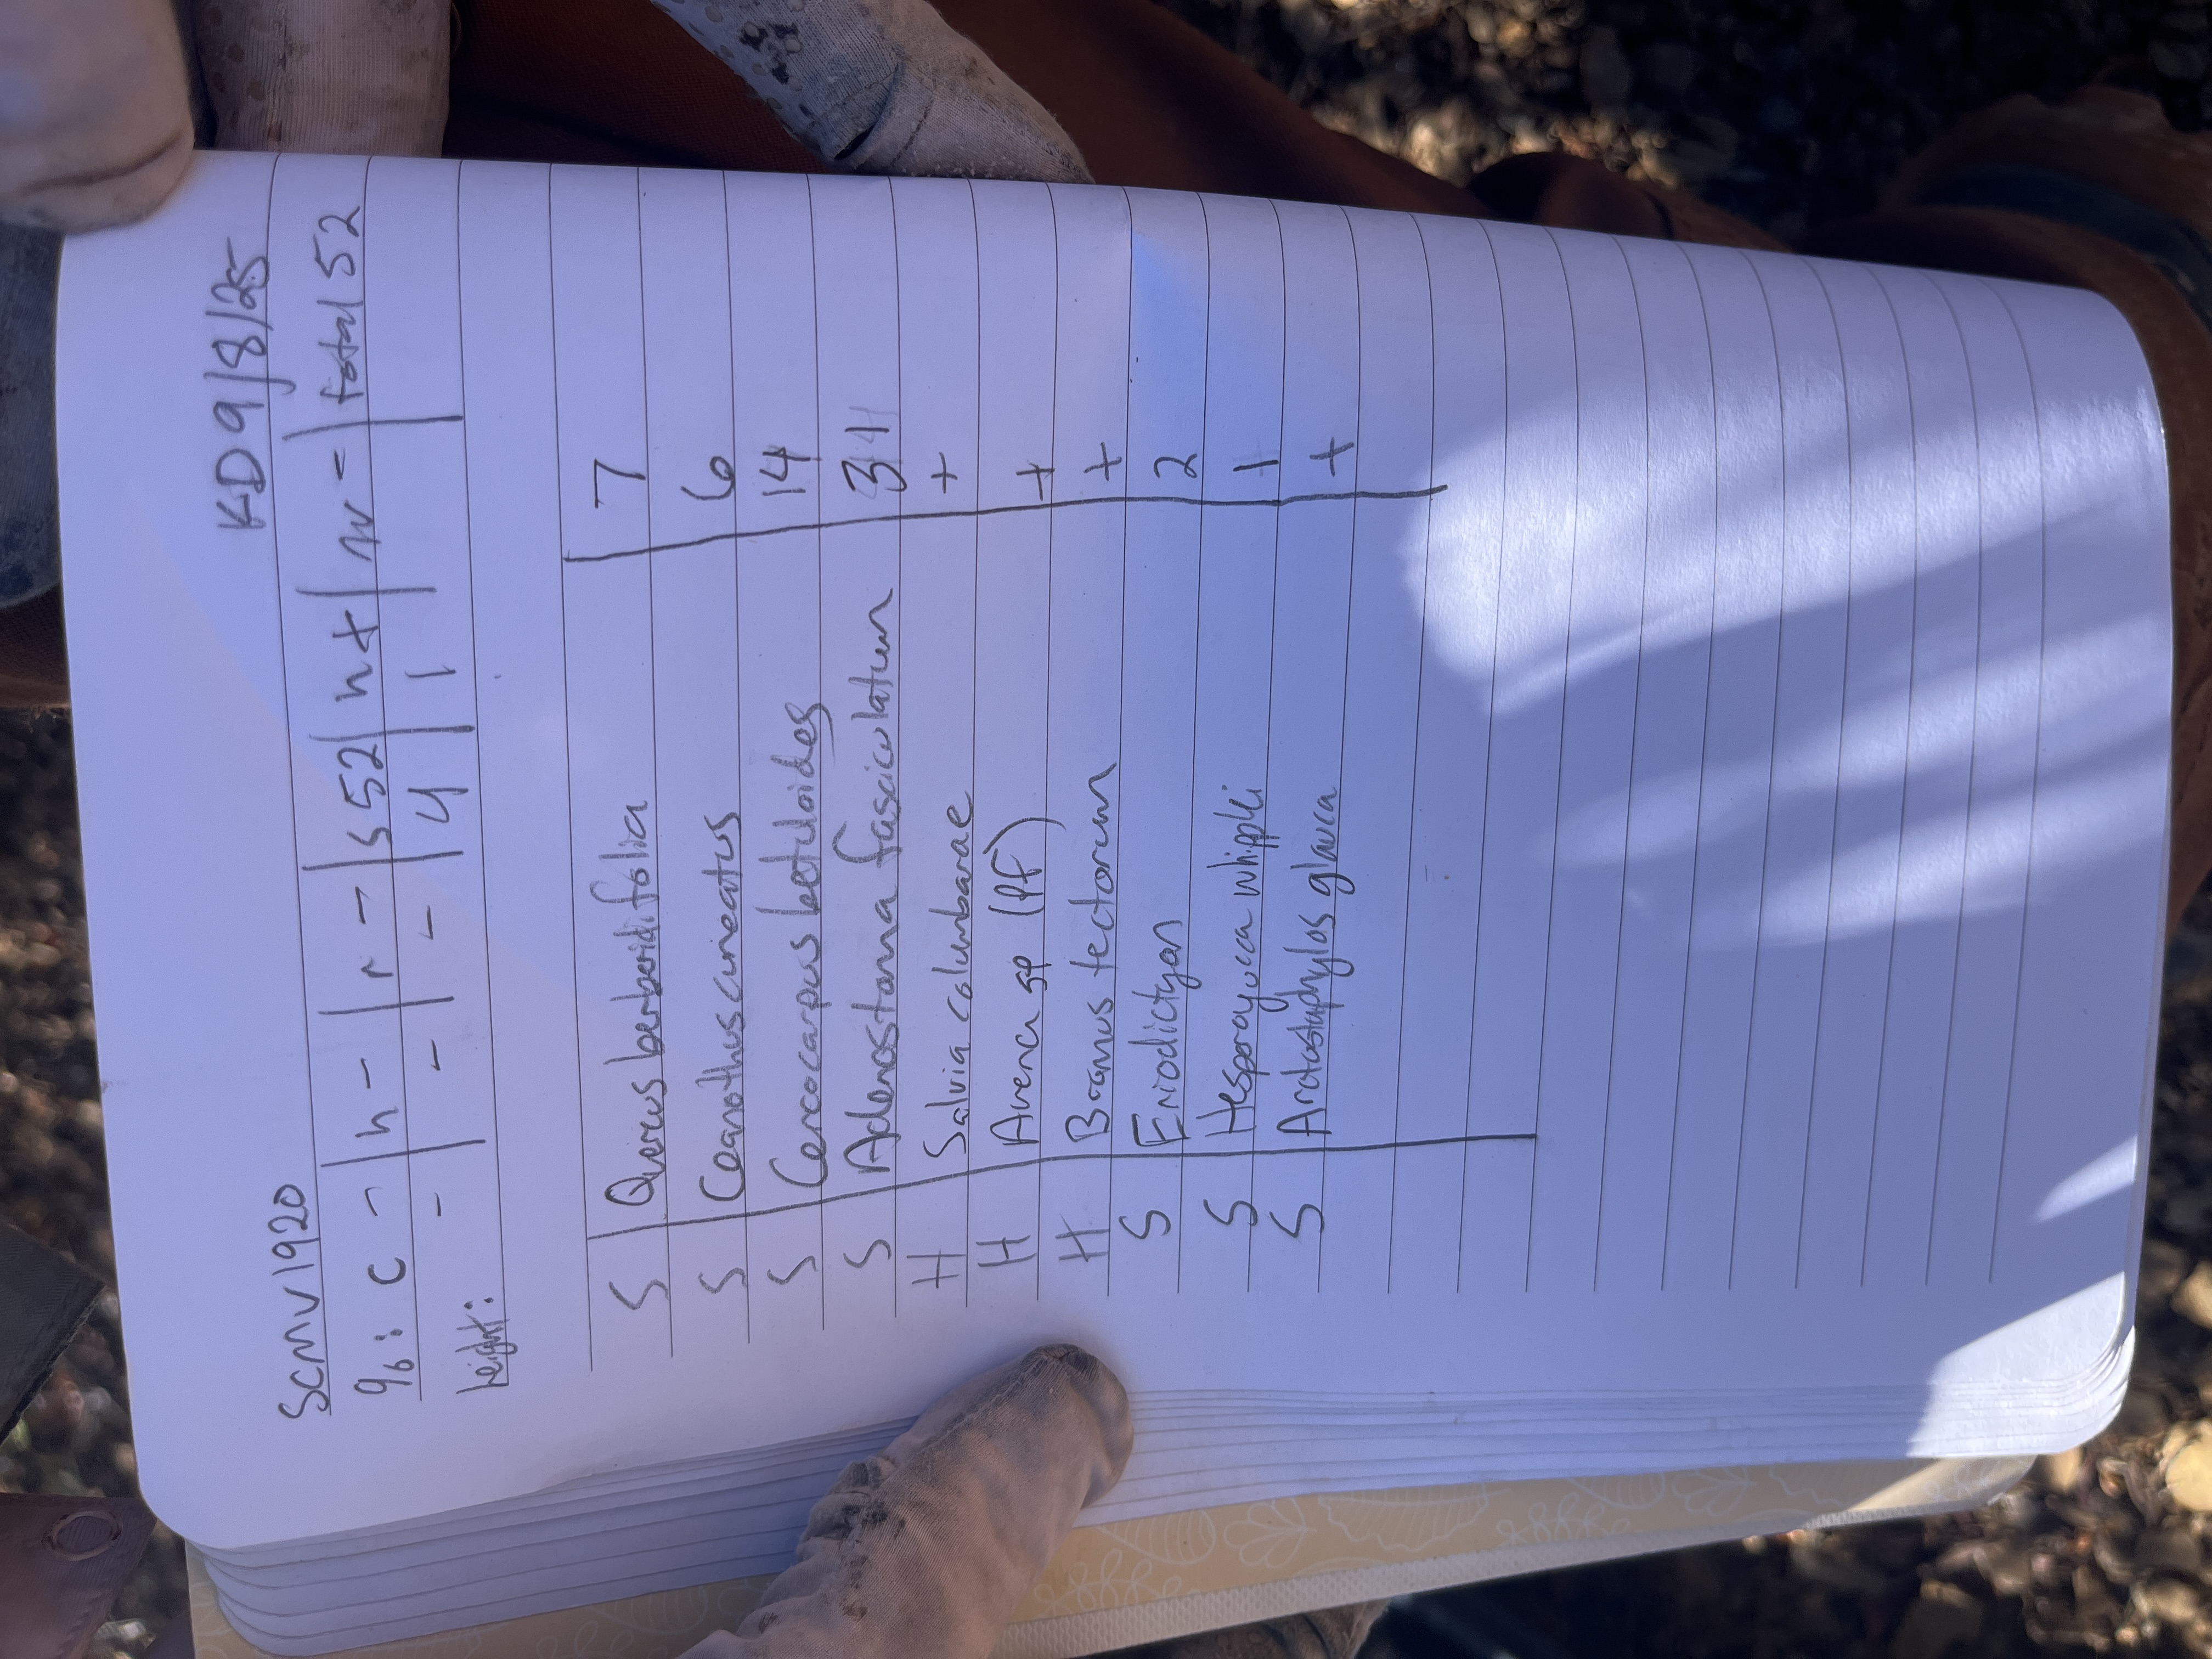 KD 9/8/25
SCMV1920
%: C - | h - | r - | s 52 | h + | nv - | total 52
height: - | - | - | 4 | 1 |
S | Quercus berberidifolia | 7
S | Ceanothus cuneatus | 6
S | Cercocarpus betuloides | 14
S | Adenostoma fasciculatum | 34
H | Salvia columbarae | +
H | Avena sp (PF) | +
H | Bromus tectorum | +
S | Eriodictyon | 2
S | Hesperoyucca whipplei | 1
S | Arctostaphylos glauca | +